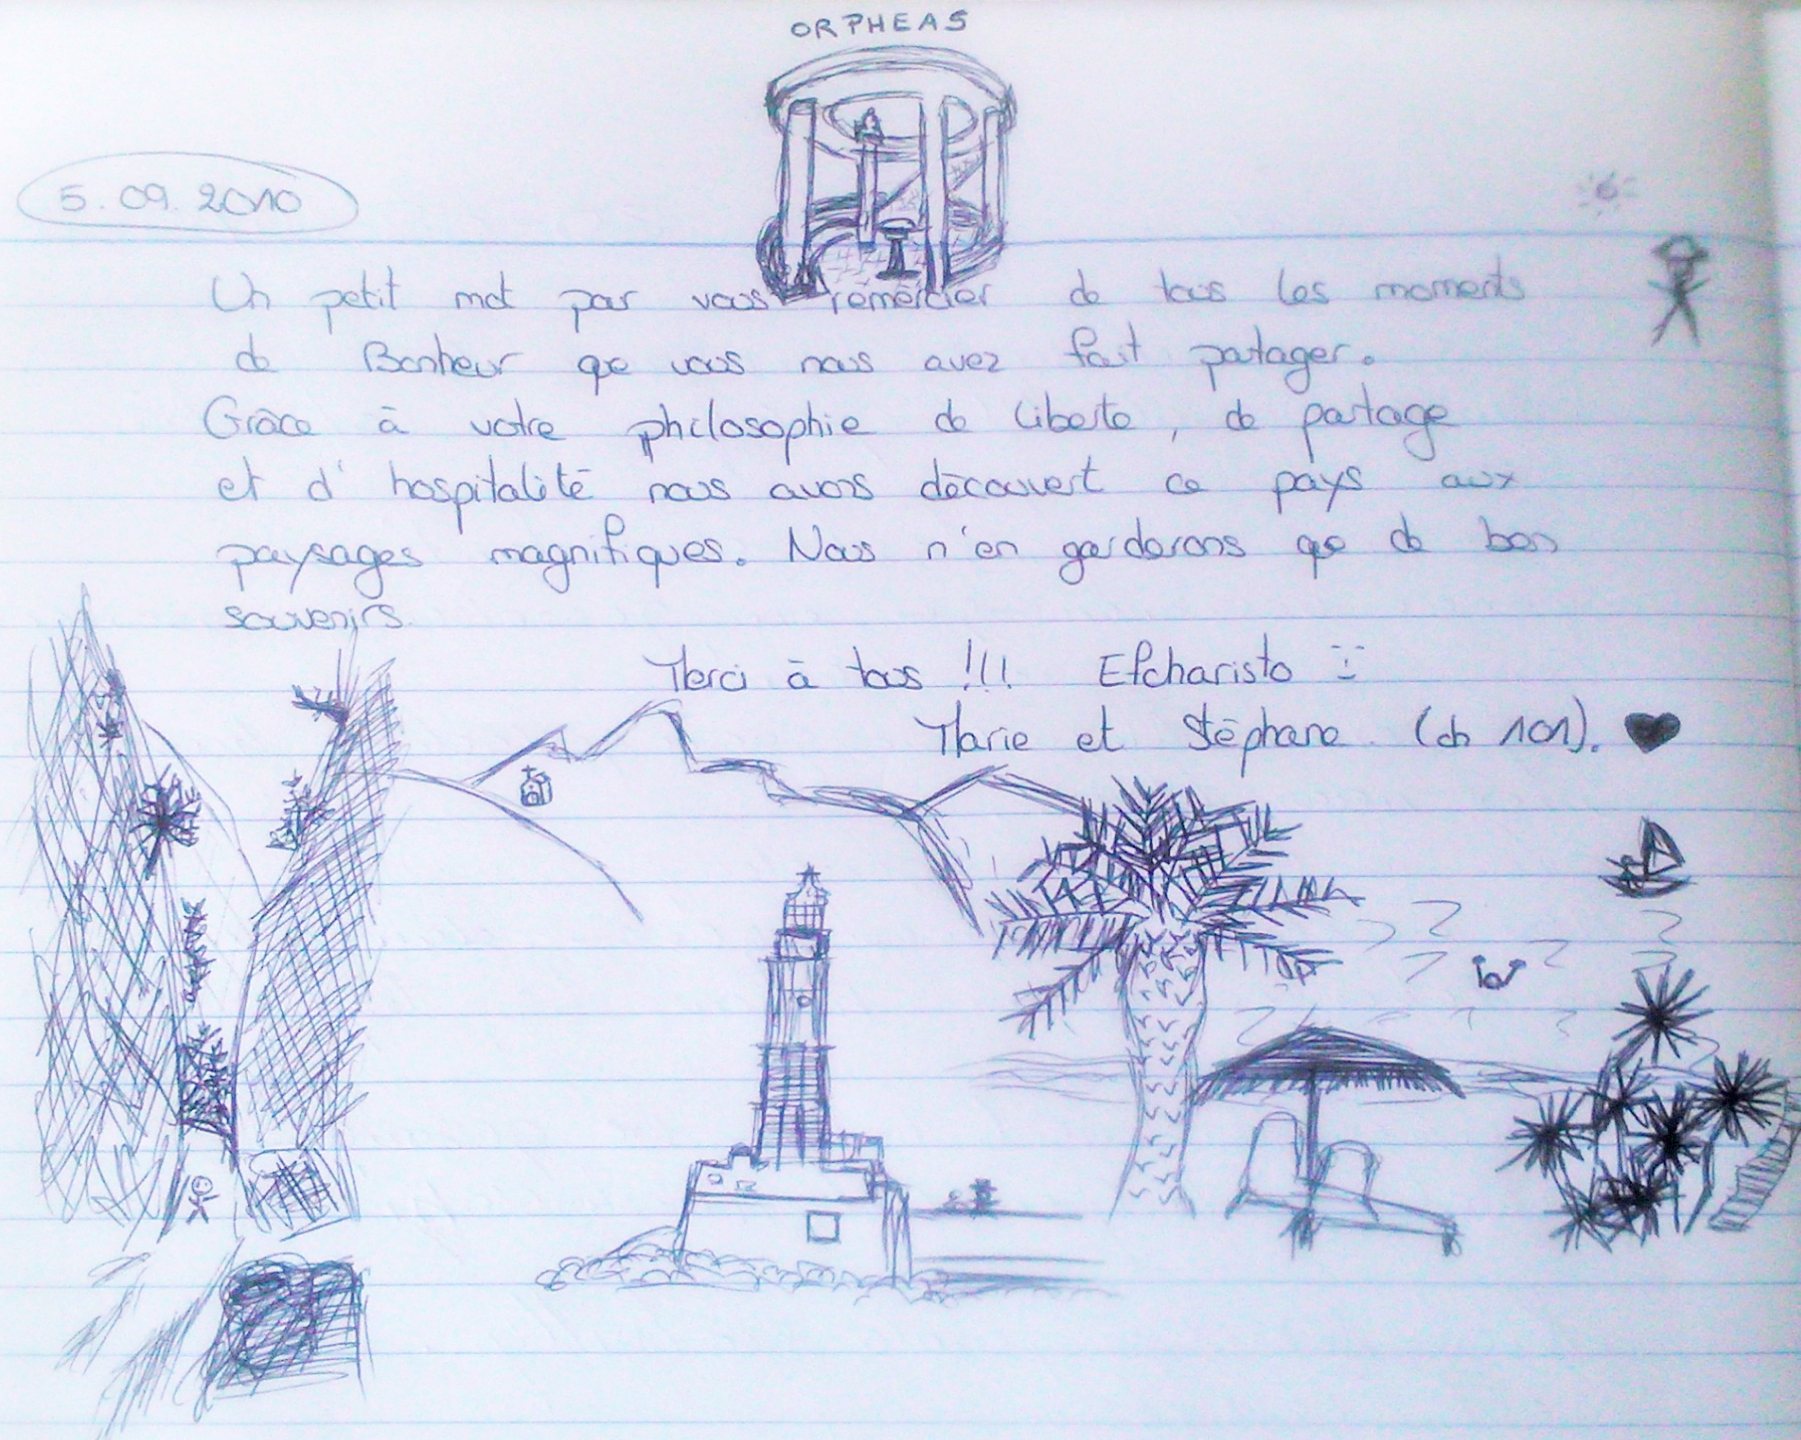 ORPHEAS
5.09.2010
Un petit mot par vous remercier de tous les moments
de Bonheur que vous nous avez fait partager.
Grâce à votre philosophie de liberté, de partage
et d'hospitalité nous avons découvert ce pays aux
paysages magnifiques. Nous n'en garderons que de bons
souvenirs.
Merci à tous !!! Efcharisto
Marie et Stéphane (ch 101). ♥